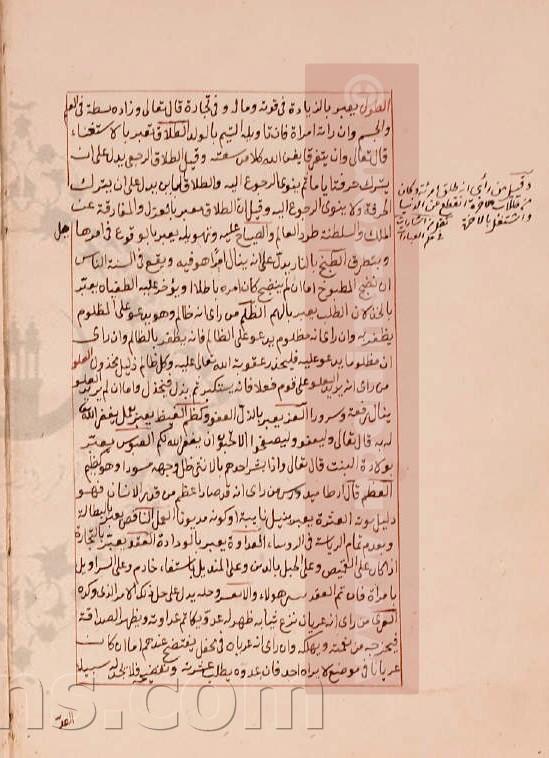 الطول يعبر بالزيادة في قوته وماله وفي تجارة قال تعالى وزاده بسطة في العلم
والجسم وان راته امراة فانها ويله اليتيم بالولد الطلاق يعبر بالاستغناء
قال تعالى وان يتفرقا يغن الله كلا من سعته وقيل الطلاق الرجعي يدل على ان
يترك حرفته يا ما ثم ينوي الرجوع اليه والطلاق الباين يدل على ان يترك
الحرفة ولا ينوي الرجوع اليه وقيل ان الطلاق يعبر بالعزل والمفارقة عن
الملك والسلطنة طرد العالم والصياح عليه وتهويله يعبر بالوقوع في امر هايل
وبتطرق الطبخ بالنار يدل على انه ينال امرا هو فيه ويقع في السنة الناس
ان نضج المطبوخ اما ان لم ينضج كان امره باطلا ويؤخر عليه
بالخذلان الطلب يعبر بالهم الظلم من راى انه ظالم وهو يدعو على المظلوم
يظفر به وان راى انه مظلوم يدعو على الظالم فانه يظفر بالظالم وان راى
ان مظلوما يدعو عليه فليحذر عقوبة الله تعالى عليه وكل ظالم ذليل مخذول العلو
من راى انه يريد العلو على قوم فعلا فانه يستكبر ثم يذل فيخذل واما ان لم يريد العلو
ينال رفعة وسرورا العفو يعبر بالذل العفو وكظم الغيظ يعبر بعمل يغفر الله
له به قال تعالى وليعفوا وليصفحوا الا تحبون ان يغفر الله لكم العبوس يعبر
بولادة البنت قال تعالى واذا بشر احدهم بالانثى ظل وجهه مسودا وهو كظيم
العظم قال ارطاميدورس من راى انه قد صار اعظم من قدر الانسان فهو
دليل موته العثرة يعبر بنيل نايبة او كونه مديونا العمل الناقص يعبر بالبطالة
وبعدم تمام الرياسة في الروساء العداوة يعبر بالوداد العقد يعبر بالتجارة
اذا كان على القميص وعلى الحبل بالدين وعلى المنديل باستفا خادم وعلى السراويل
بامراة فان تم العقد سهولا والا تعسر وحله يدل على حل ذلك الامر الذي ذكره
العري من راى انه عريان نزع ثيابه ظهر له عدو يكاتم عداوته ويظهر الصداقة
فيخرجه من نعمته ويهلكه وان راى انه عريان في محفل يفتضح عندهم اما ان كان
عريانا في موضع لا يراه احد فان عدوه يطلب عثرته فلا يجد اليه سبيلا
العز
وقيل من راى انه طلق امرئته وكان
انقطع عن الدنيا
واشتغل بالاخرة
www
ns.com